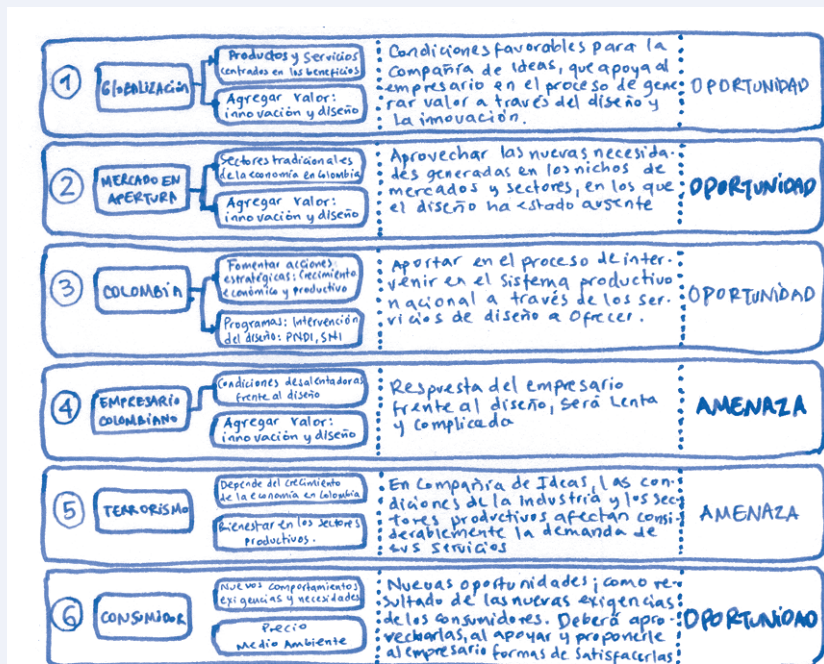 1
Globalización
Productos y Servicios
centrados en los beneficios
Agregar valor:
innovación y diseño
Condiciones favorables para la
compañía de Ideas, que apoya al
empresario en el proceso de gene
rar valor a través del diseño y
la innovación.
OPORTUNIDAD
2
MERCADO EN
APERTURA
Sectores tradicionales
de la economía en Colombia
Agregar valor:
innovación y diseño
Aprovechar las nuevas necesida-
des generadas en los nichos de
mercados y sectores, en los que
el diseño ha estado ausente
OPORTUNIDAD
3
COLOMBIA
Fomentar acciones
estratégicas: Crecimiento
económico y productivo
Programas: Intervención
del diseño: PNDI, SNI
Aportar en el proceso de inter-
venir en el Sistema productivo
nacional a través de los ser-
vicios de diseño a Ofrecer.
OPORTUNIDAD
4
EMPRESARIO
COLOMBIANO
Condiciones desalentadoras
frente al diseño
Agregar valor:
innovación y diseño
Respuesta del empresario
frente al diseño, Será Lenta
y complicada
AMENAZA
5
TERRORISMO
Depende del crecimiento
de la economía en Colombia
Bienestar en los sectores
productivos.
En Compañía de Ideas, Las con-
diciones de la Industria y los sec-
tores productivos afectan consi-
derablemente la demanda de
sus servicios
AMENAZA
6
CONSUMIDOR
Nuevos comportamientos
exigencias y necesidades
Precio
Medio Ambiente
Nuevas oportunidades; como re-
sultado de las nuevas exigencias
de los consumidores. Deberá apro-
vecharlas, al apoyar y proponerle
al empresario formas de Satisfacerlas
OPORTUNIDAD